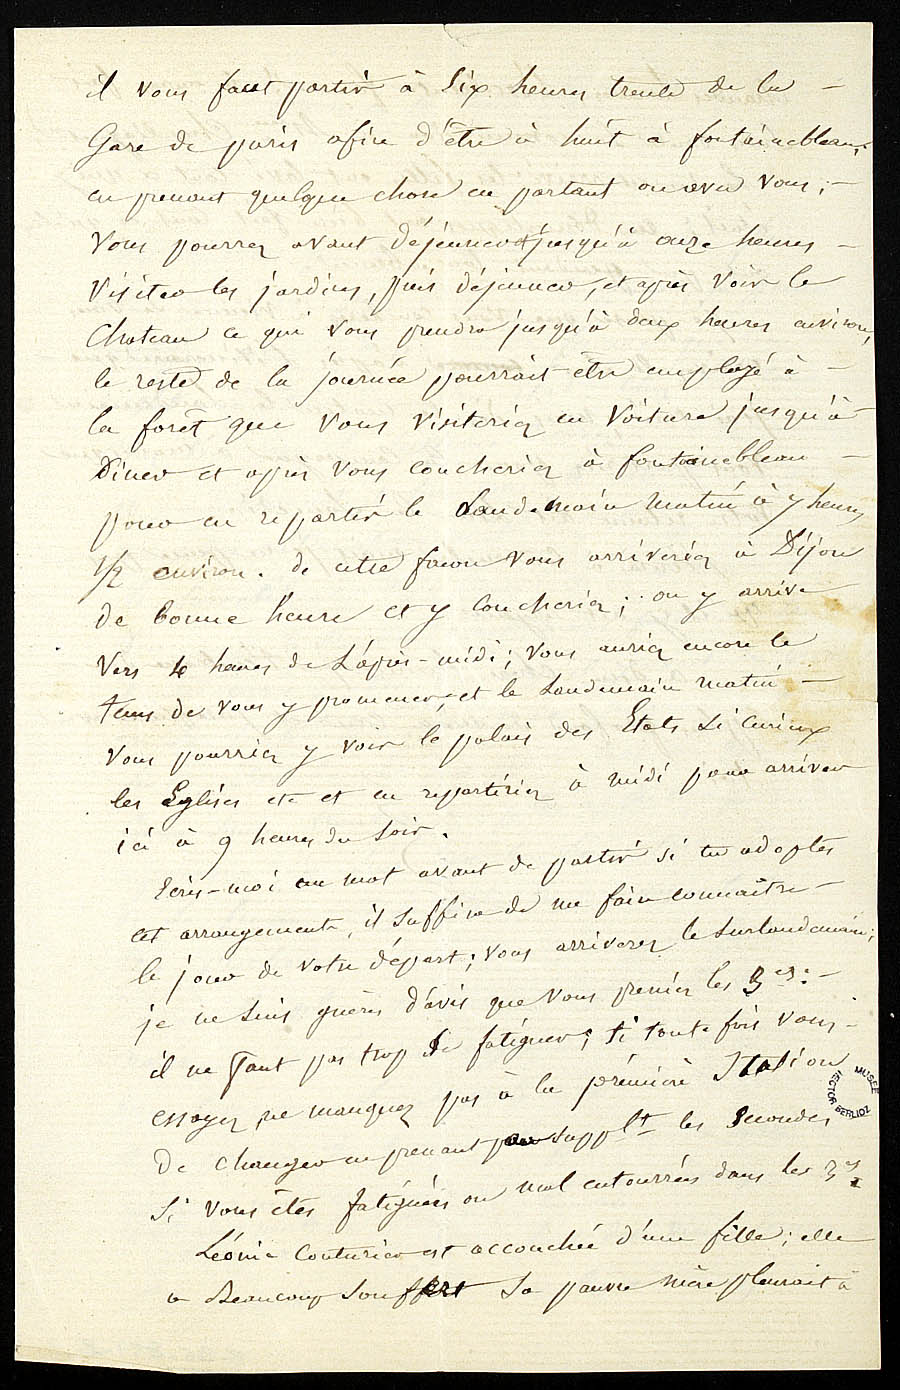 il vous faut partir à Six heures trente de la –
Gare de paris afin d'être à huit à fontainebleau,
en prenant quelque chose en partant ou avec vous; –
Vous pourrez avant déjeuner et jusqu'à onze heures –
Visiter les jardins, puis déjeuner, et après voir le
Chateau ce qui vous prendra jusqu'à deux heures environ,
le reste de la journée pourrait être employé à –
la forêt que vous visiteriez en voiture jusqu'à
Diner et après vous coucheriez à fontainebleau –
pour en repartir le Landemain matin à 7 heures
1/2 environ. de cette facon vous arriveriez à Dijon
de bonne heure et y coucheriez; on y arrive
Vers 4 heures de L'après-midi; vous auriez encore le
tems de vous y promener, et le Landemain matin –
Vous pourriez y voir le palais des Etats si curieux
les Eglises etc et en repartiriez à midi pour arriver
ici à 9 heures du Soir.
Ecris-moi un mot avant de partir si tu adoptes
cet arrangement, il suffira de me faire connaître –
le jour de votre départ; vous arriverez le surlandemain;
je ne suis guères d'avis que vous preniez les 3es: –
il ne faut pas trop se fatiguer; si toute fois vous –
essayez, ne manquez pas à la première Station
De changer en prenant pour supplt les Secondes
Si vous êtes fatiguées ou mal entourrées dans les 3es
Léonie Couturier est accouchée d'une fille; elle
a Beaucoup souffert Sa pauvre mère pleurait à
MUSEE
HECTOR BERLIOZ